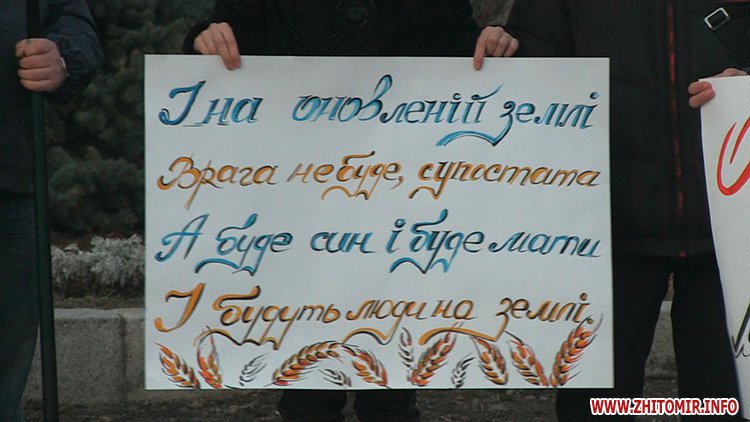 І на оновленій землі
Врага не буде, супостата
А буде син і буде мати
І будуть люди на землі.
WWW.ZHITOMIR.INFO